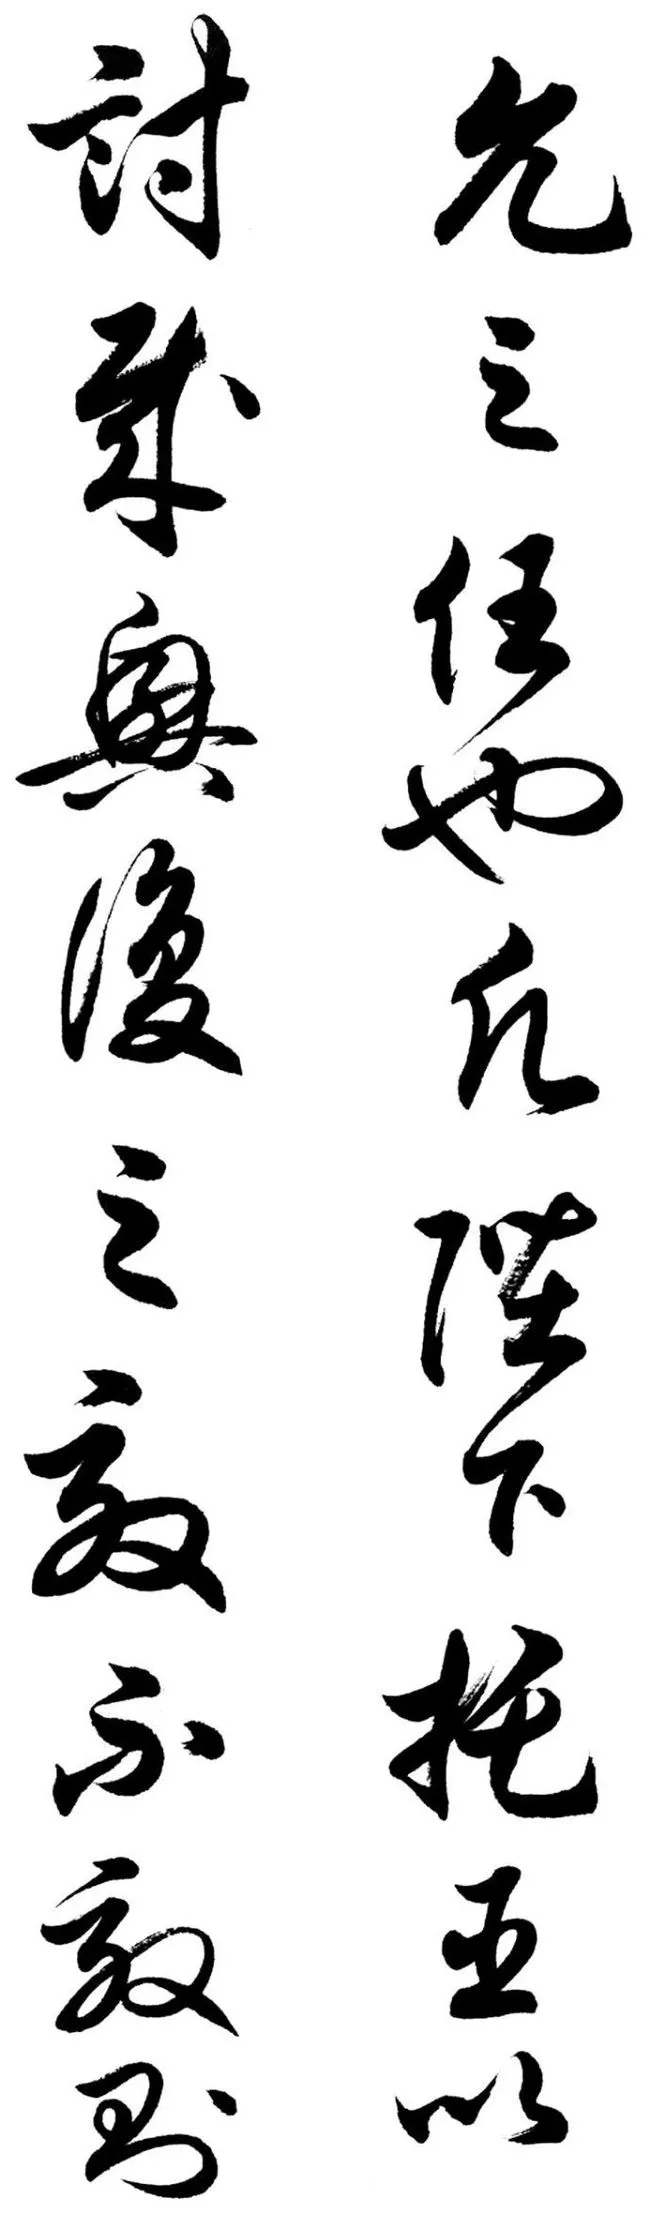 允之任也願陛下托臣以
討賊興復之效不效則